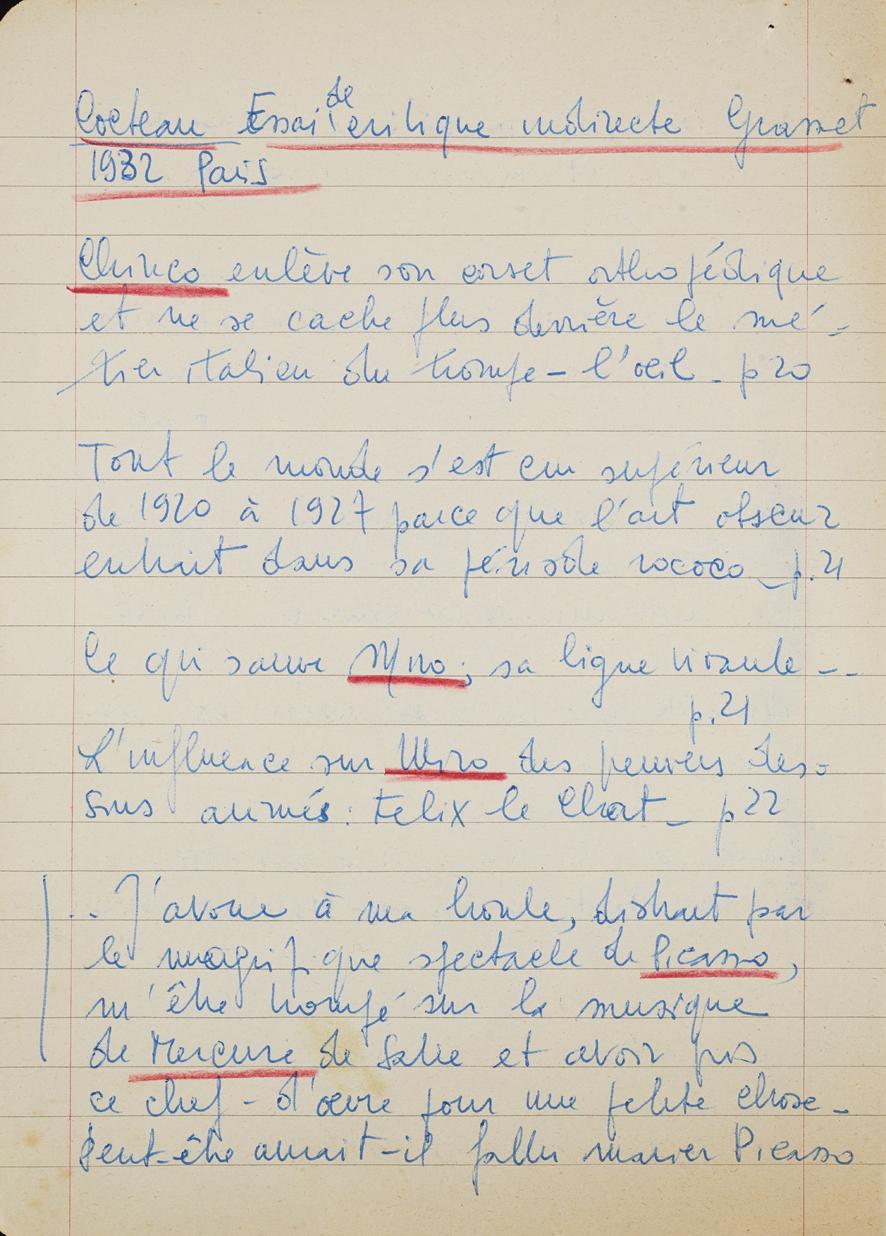 Cocteau Essai de critique indirecte Grasset
1932 Paris
Chirico enlève son corset orthopédique
et ne se cache plus derrière le mé-
tier italien du trompe-l'oeil - p 20
Tout le monde s'est cru supérieur
de 1920 à 1927 parce que l'art obscur
entrait dans sa période rococo - p. 21
Ce qui sauve Miro; sa ligne vivante --
p. 21
L'influence sur Miro des premiers des=
sins animés: Felix le Chat - p 22
.. J'avoue à ma honte, distrait par
le magnifique spectacle de Picasso,
m'être trompé sur la musique
de Mercure de Satie et avoir pris
ce chef-d'œuvre pour une petite chose -
Peut-être aurait-il fallu marier Picasso